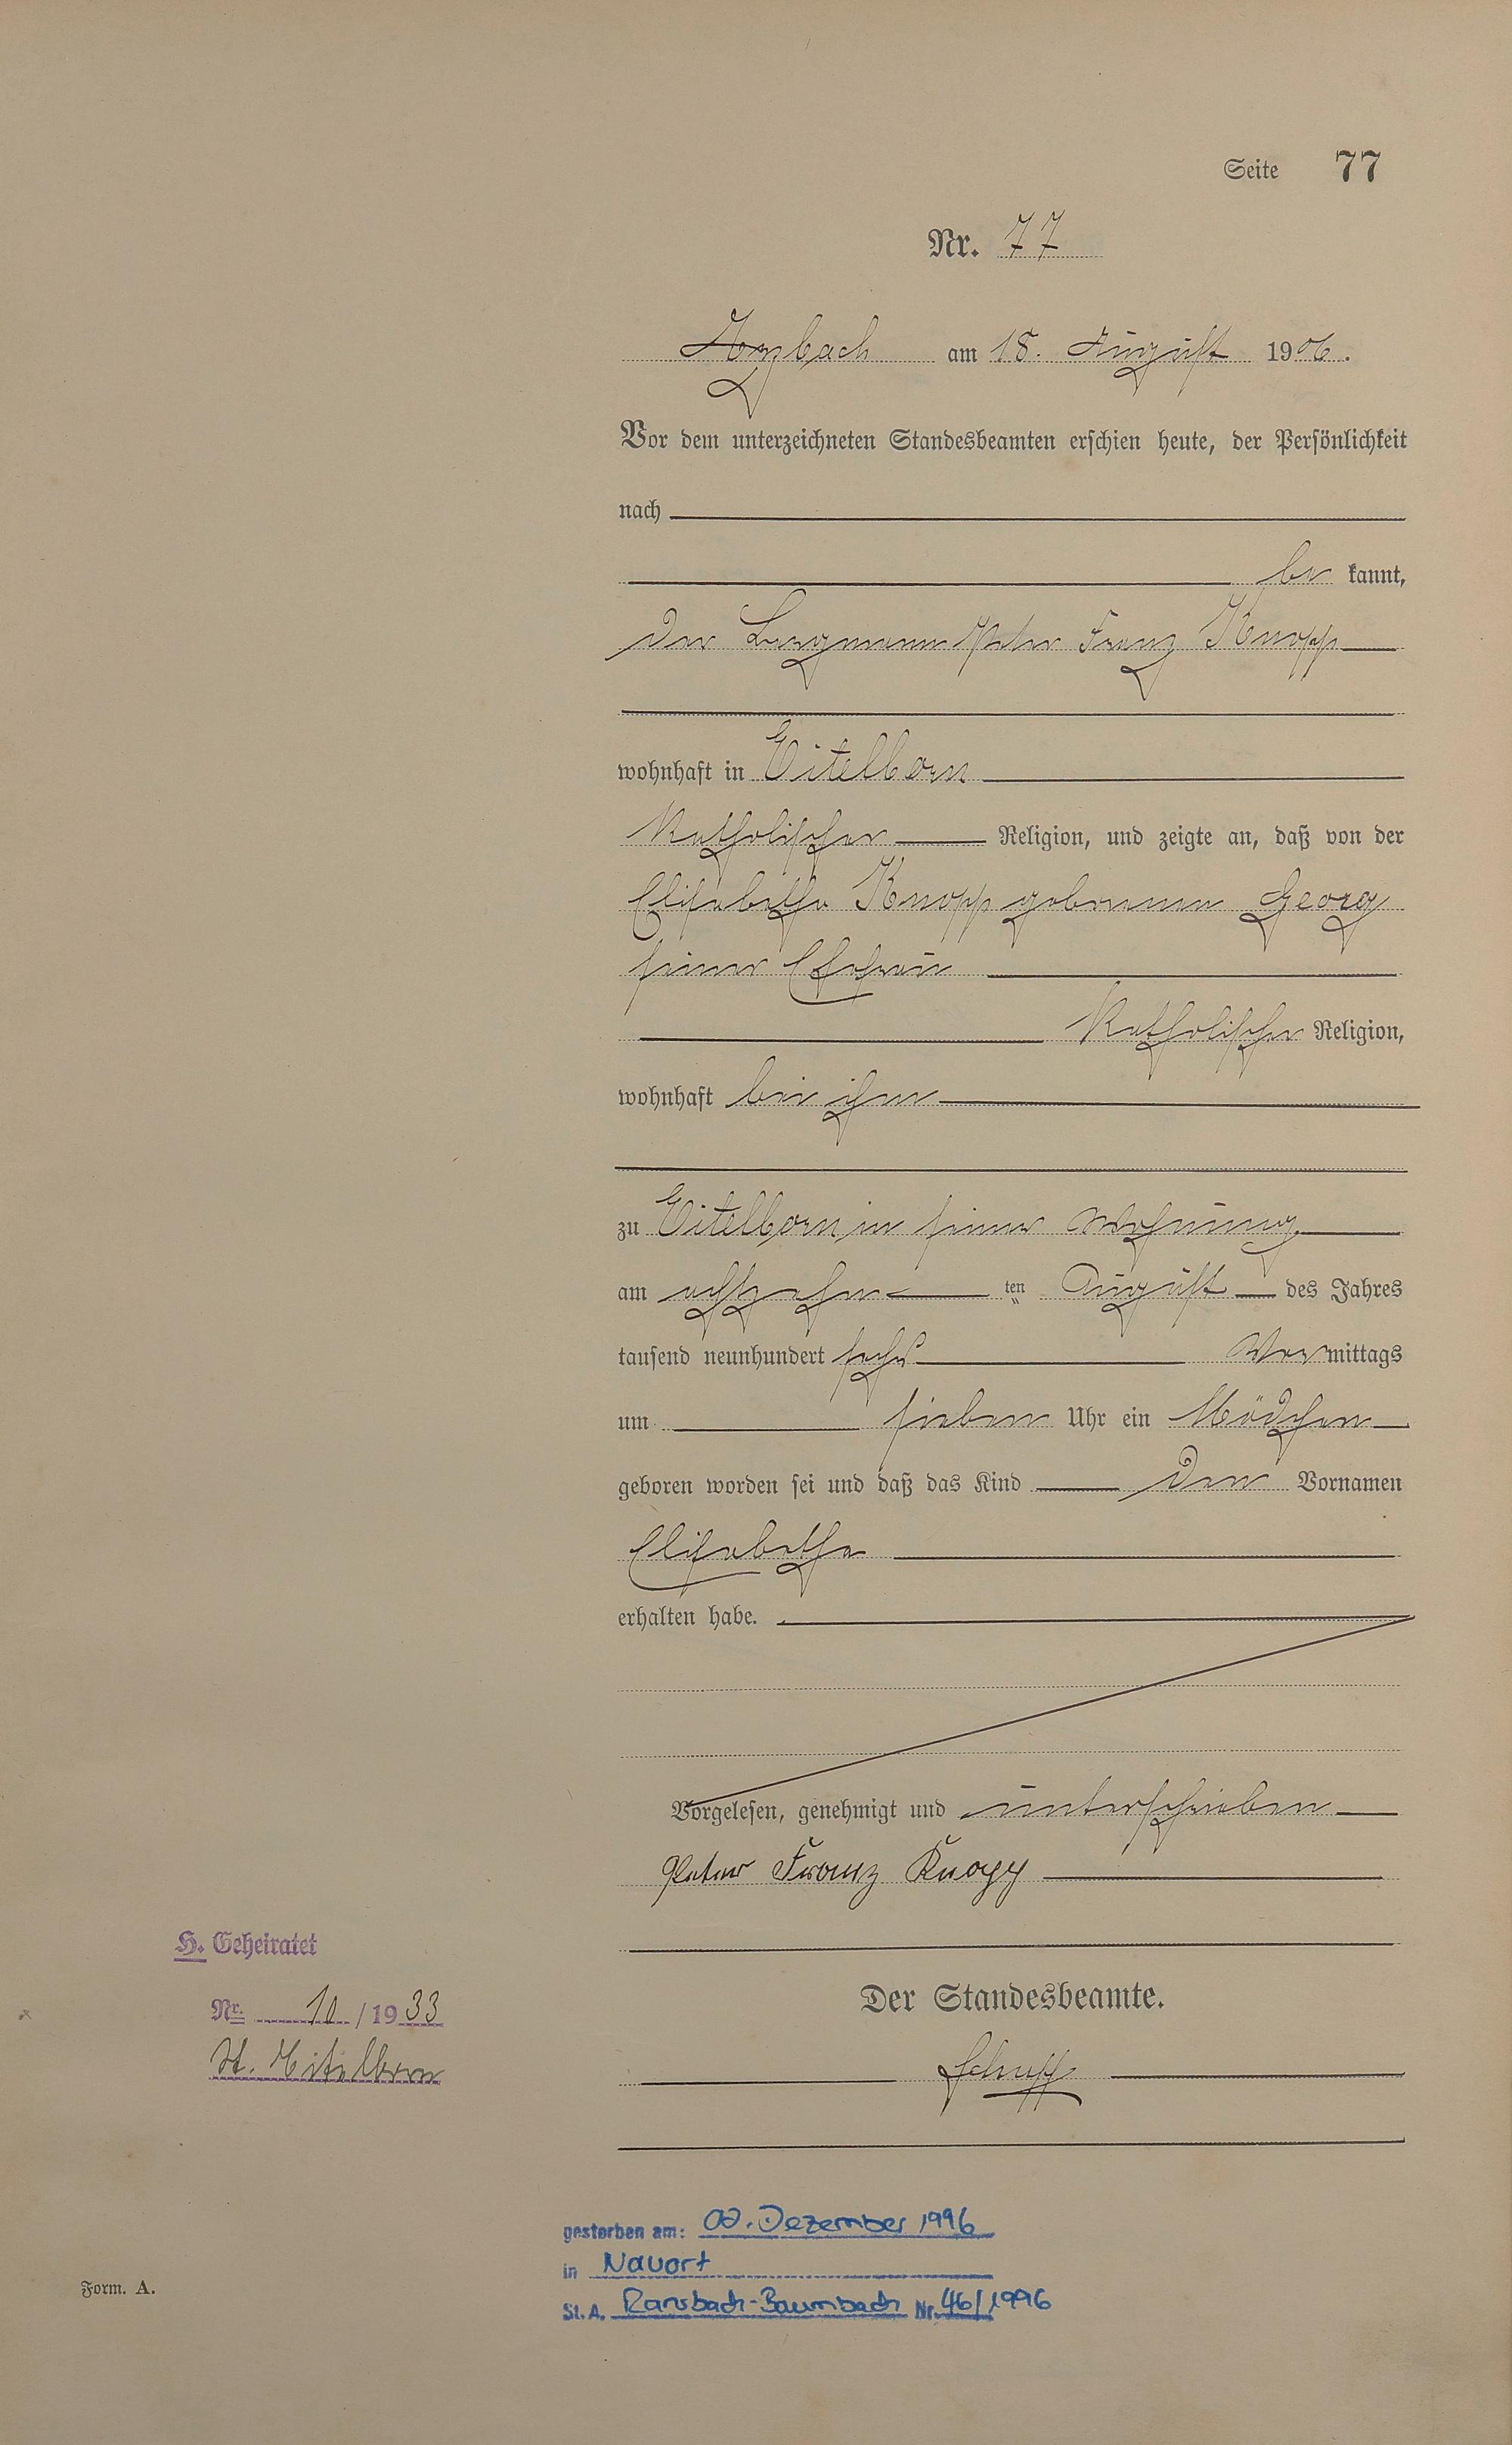 Seite 77
Nr. 77
Arzbach am 18. August 1906.
Vor dem unterzeichneten Standesbeamten erschien heute, der Persönlichkeit
nach
be kannt,
der Bergmann Peter Franz Knopp
wohnhaft in Eitelborn
Katholischer Religion, und zeigte an, daß von der
Elisabetha Knopp geborenen Georg
seiner Ehefrau
Katholischer Religion,
wohnhaft bei ihm
zu Eitelborn in seiner Wohnung
am achtzehn ten August des Jahres
tausend neunhundert sechs Vormittags
um sieben Uhr ein Mädchen
geboren worden sei und daß das Kind den Vornamen
Elisabetha
erhalten habe.
Vorgelesen, genehmigt und unterschrieben
Peter Franz Knopp
Der Standesbeamte.
Schupp
H. Geheiratet
Nr. 10 / 1933
St. Eitelborn
gestorben am: Dezember 1996
in Nauort
St. A. Ransbach-Baumbach Nr. 46/1996
Form. A.